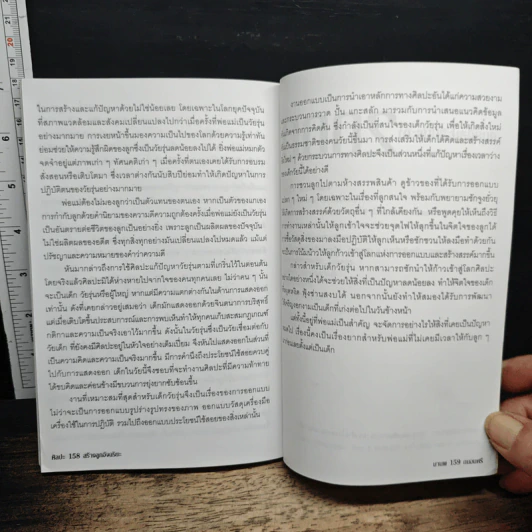 ในการสร้างและแก้ปัญหาด้วยไม่ใช่น้อยเลย โดยเฉพาะในโลกยุคปัจจุบัน
ที่สภาพแวดล้อมและสังคมเปลี่ยนแปลงไปกว่าเมื่อครั้งที่พ่อแม่เป็นวัยรุ่น
อย่างมากมาย การเงยหน้าขึ้นมองความเป็นไปของโลกด้วยความรู้เท่าทัน
ย่อมช่วยให้ความรู้สึกผิดของลูกซึ่งเป็นวัยรุ่นลดน้อยลงไปได้ ยิ่งพ่อแม่ยกตัว
จดจำอยู่แต่ภาพเก่า ๆ ทัศนคติเก่า ๆ เมื่อครั้งที่ตนเองเคยได้รับการอบรม
สั่งสอนหรือเติบโตมา ซึ่งเวลาต่างกันนับสิบปีย่อมทำให้เกิดปัญหาในการ
ปฏิบัติตนของวัยรุ่นอย่างมากมาย
พ่อแม่ต้องไม่มองลูกว่าเป็นตัวแทนของตนเอง หากเป็นตัวของเขาเอง
การกำกับลูกด้วยคำนิยามของความดีความถูกต้องครั้งเมื่อพ่อแม่ยังเป็นวัยรุ่น
เป็นอันตรายต่อชีวิตของลูกเป็นอย่างยิ่ง เพราะลูกเป็นผลผลิตของปัจจุบัน
ไม่ใช่ผลิตผลของอดีต ซึ่งทุกสิ่งทุกอย่างมันเปลี่ยนแปลงไปหมดแล้ว แม้แต่
ปรัชญาและความหมายของคำว่าความดี
หันมากล่าวถึงการใช้ศิลปะแก้ปัญหาวัยรุ่นตามที่เกริ่นไว้ในตอนต้น
โดยจริงแล้วศิลปะมิได้ห่างหายไปจากชีวิตของคนทุกคนเลย ไม่ว่าคน ๆ นั้น
จะเป็นเด็ก วัยรุ่นหรือผู้ใหญ่ หากแต่มีความแตกต่างกันในด้านการแสดงออก
เท่านั้น ดังที่เคยกล่าวอยู่เสมอว่า เด็กมักแสดงออกด้วยจินตนาการบริสุทธิ์
แต่เมื่อเติบโตขึ้นประสบการณ์และการพบเห็นทำให้ทุกคนเก็บสะสมกฎเกณฑ์
กติกาและความเป็นจริงเอาไว้มากขึ้น ดังนั้นในวัยรุ่นซึ่งเป็นวัยเชื่อมต่อกับ
วัยเด็ก ที่ยังคงมีศิลปะอยู่ในหัวใจอย่างเต็มเปี่ยม จึงหันไปแสดงออกในส่วนที่
เป็นความคิดและความเป็นจริงมากขึ้น มีการคำนึงถึงประโยชน์ใช้สอยควบคู่
ไปกับการแสดงออก เด็กในวัยนี้จึงชอบที่จะทำงานศิลปะที่มีความท้าทาย
ได้ขบคิดและค่อนข้างมีขบวนการยุ่งยากซับซ้อนขึ้น
งานที่เหมาะสมที่สุดสำหรับเด็กวัยรุ่นจึงเป็นเรื่องของการออกแบบ
ไม่ว่าจะเป็นการออกแบบรูปร่างรูปทรงของภาพ ออกแบบวัสดุเครื่องมือ
เครื่องใช้ในการปฏิบัติ รวมไปถึงออกแบบประโยชน์ใช้สอยของสิ่งเหล่านั้น
ศิลปะ 158 สร้างลูกอัจฉริยะ
งานออกแบบเป็นการนำเอาหลักการทางศิลปะอันได้แก่ความสวยงาม
กระบวนการวาด ปั้น แกะสลัก มารวมกับการนำเสนอแนวคิดข้อมูล
เกิดจากการคิดค้น ซึ่งกำลังเป็นที่สนใจของเด็กวัยรุ่น เพื่อให้เกิดสิ่งใหม่
เป็นธรรมชาติของคนวัยนี้ขึ้นมา การส่งเสริมให้เด็กได้คิดและสร้างสรรค์
ใหม่ ๆ ด้วยกระบวนการทางศิลปะจึงเป็นส่วนหนึ่งที่แก้ปัญหาเรื่องเวลาว่าง
เด็กวัยนี้ได้อย่างดี
การชวนลูกไปตามห้างสรรพสินค้า ดูข้าวของที่ได้รับการออกแบบ
แปลก ๆ ใหม่ ๆ โดยเฉพาะในเรื่องที่ลูกสนใจ พร้อมกับพยายามชักจูงยั่วยุ
ให้เกิดการสร้างสรรค์ด้วยวัตถุอื่น ๆ ที่ใกล้เคียงกัน หรือพูดคุยให้เห็นถึงวิธี
การทำงานเหล่านั้นให้ลูกเข้าใจจะช่วยจุดไฟให้ลุกขึ้นในจิตใจของลูกได้
ซื้อวัสดุสิ่งของมาลงมือปฏิบัติให้ลูกเห็นหรือชักชวนให้ลงมือทำด้วยกัน
เป็นการโน้มน้าวให้ลูกก้าวเข้าสู่โลกแห่งการออกแบบและสร้างสรรค์มากขึ้น
กล่าวสำหรับเด็กวัยรุ่น หากสามารถชักนำให้ก้าวเข้าสู่โลกศิลปะ
อย่างหนึ่งได้ก็จะช่วยให้สิ่งที่เป็นปัญหาลดน้อยลง ทำให้จิตใจของเด็ก
หงุดหงิด ฟุ้งซ่านสงบได้ นอกจากนั้นยังทำให้สมองได้รับการพัฒนา
เป็นเด็กที่เก่งต่อไปในวันข้างหน้า
แต่ทั้งนี้อยู่ที่พ่อแม่เป็นสำคัญ จะจัดการอย่างไรให้สิ่งที่เคยเป็นปัญหา
ไป เรื่องนี้คงเป็นเรื่องยากสำหรับพ่อแม่ที่ไม่เคยมีเวลาให้กับลูก ๆ
ตั้งแต่เป็นเด็ก
159